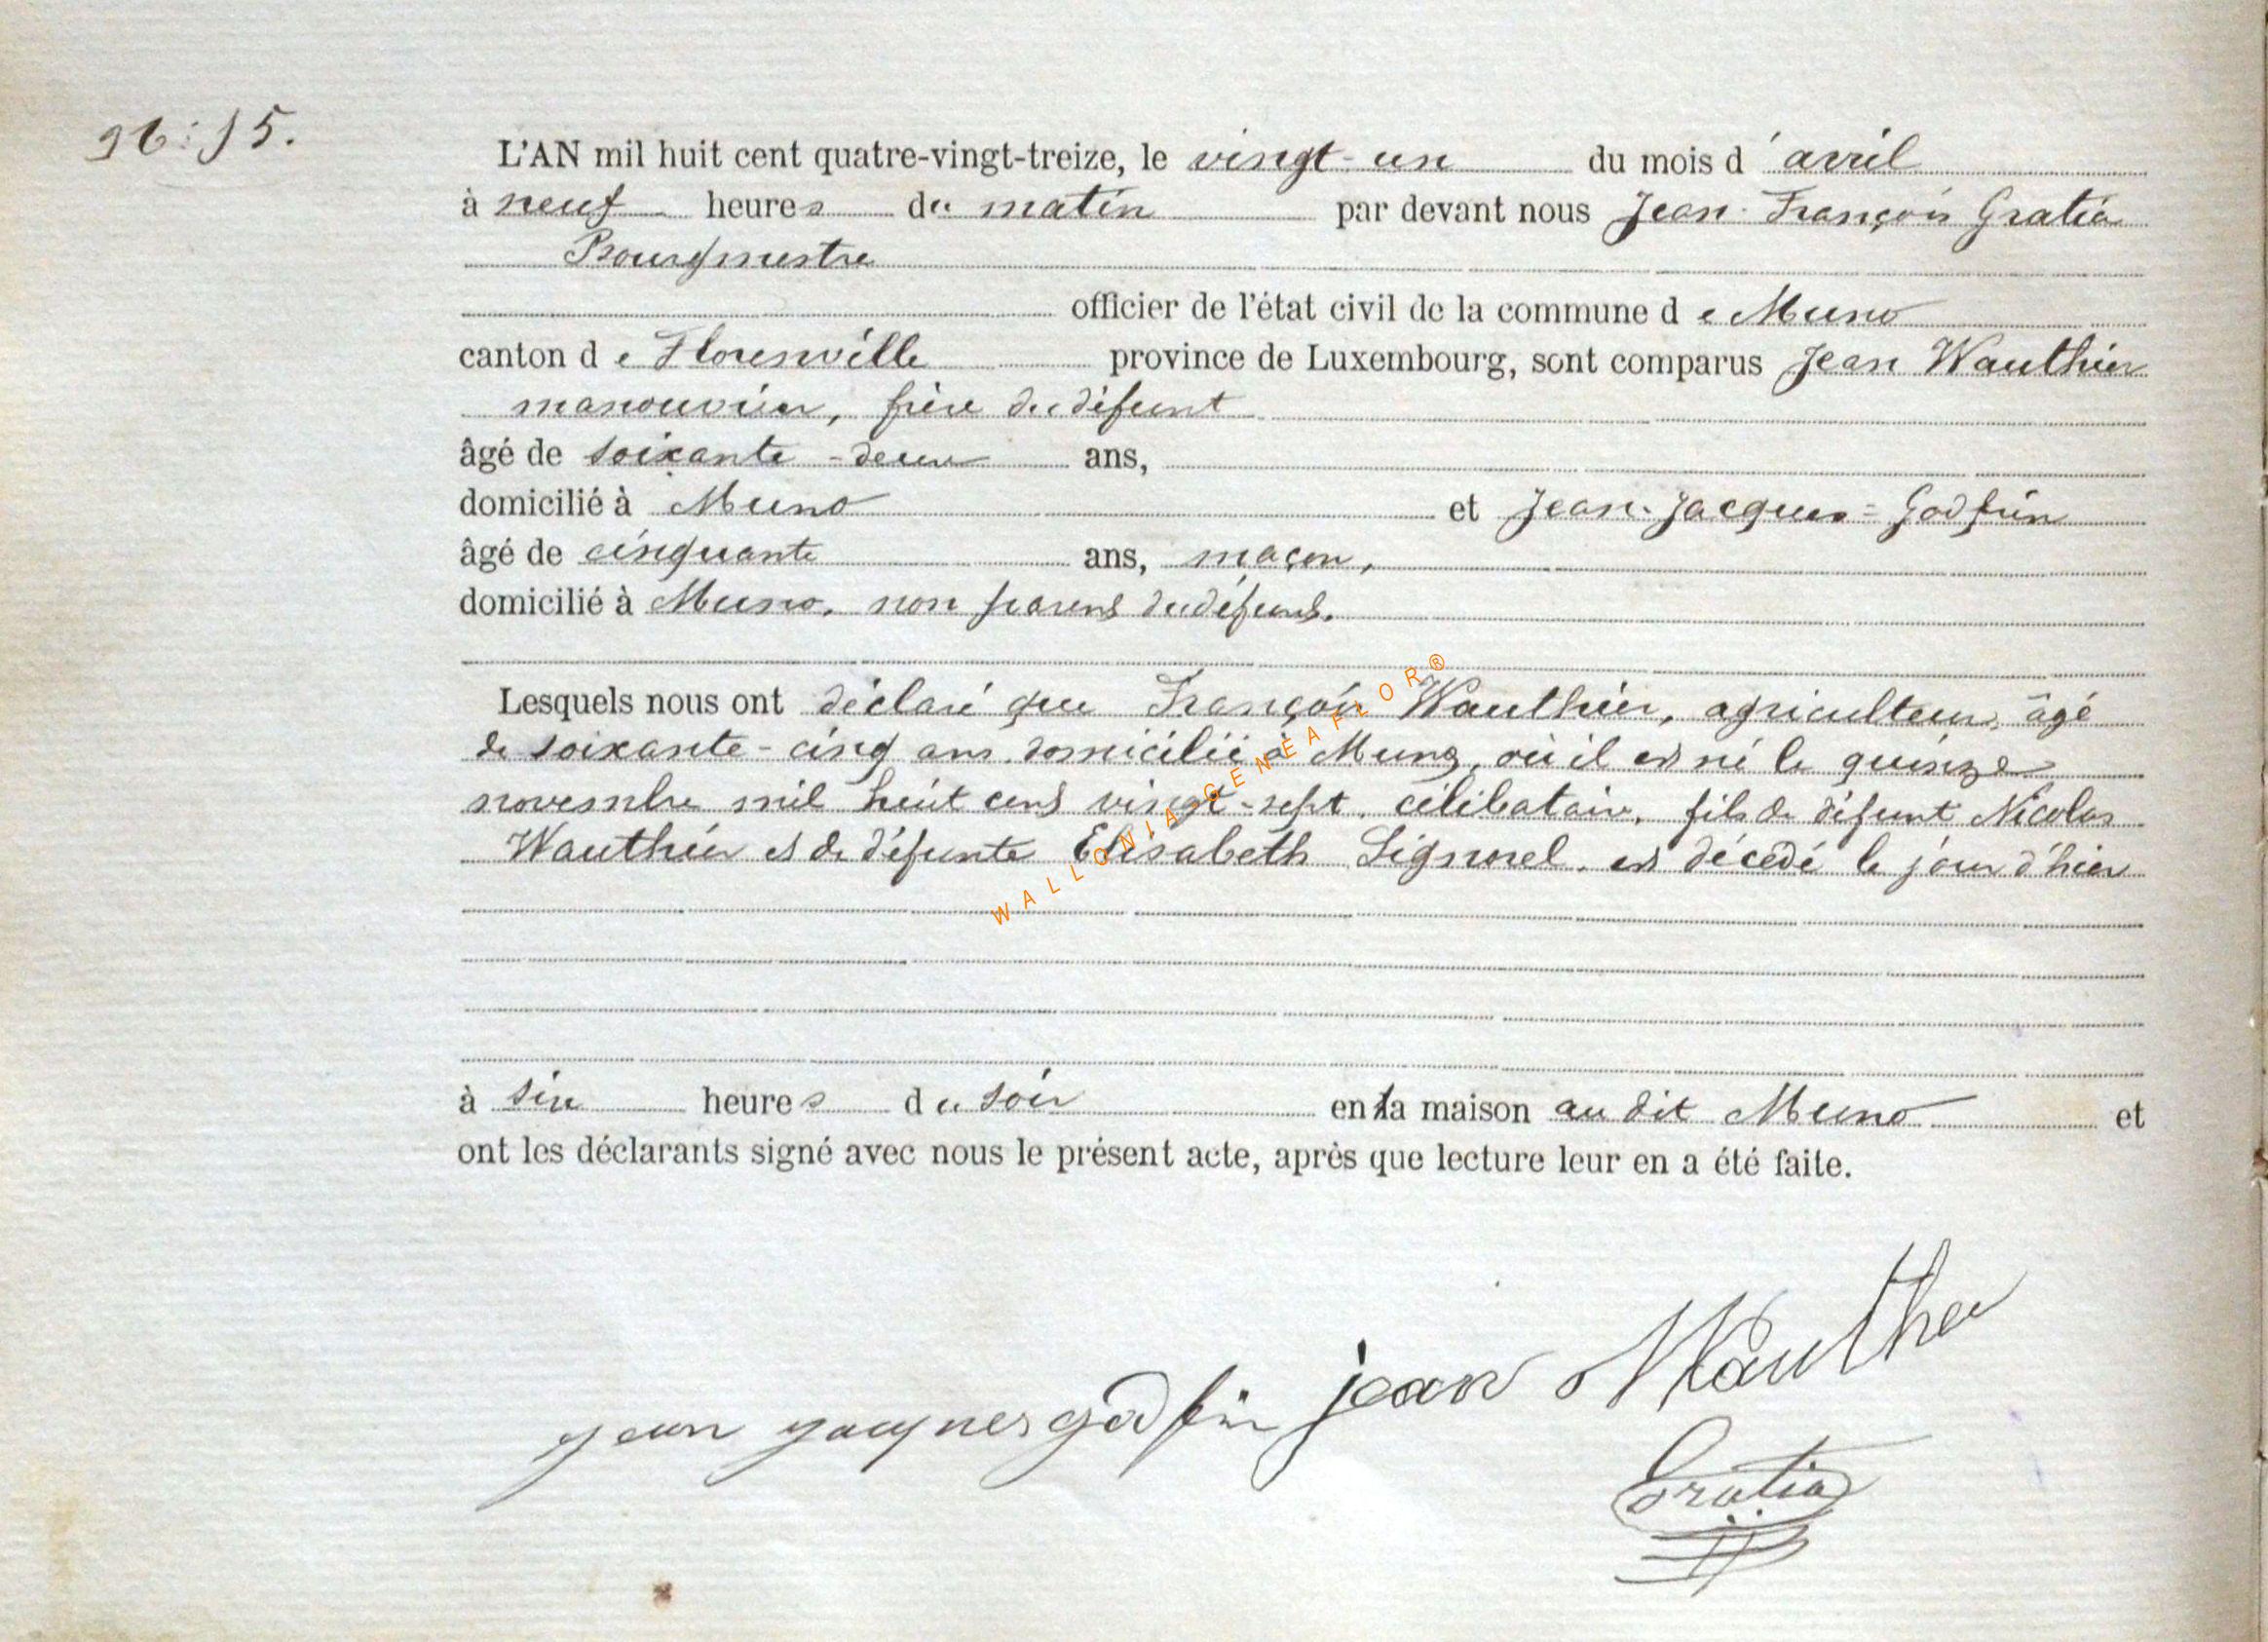 N°: 15.
L'AN mil huit cent quatre-vingt-treize, le vingt-un du mois d'avril
à neuf heures du matin par devant nous Jean-François Gratia
Bourgmestre
officier de l'état civil de la commune de Muno
canton de Florenville province de Luxembourg, sont comparus Jean Wauthier
manouvrier, frère du défunt
âgé de soixante-deux ans,
domicilié à Muno et Jean-Jacques Godfrin
âgé de cinquante ans, maçon,
domicilié à Muno, non parent du défunt.
Lesquels nous ont déclaré que François Wauthier, agriculteur, âgé
de soixante-cinq ans, domicilié à Muno, où il est né le quinze
novembre mil huit cent vingt-sept, célibataire, fils de défunt Nicolas
Wauthier et de défunte Elisabeth Lignorel, est décédé le jour d'hier
à six heures du soir en la maison au dit Muno et
ont les déclarants signé avec nous le présent acte, après que lecture leur en a été faite.
jean jacques godfrin jean Wauthier
Gratia
WALLONIA GENEAFLOR®